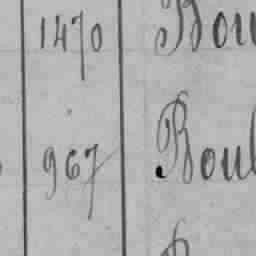 1470 Bou
967 Boul